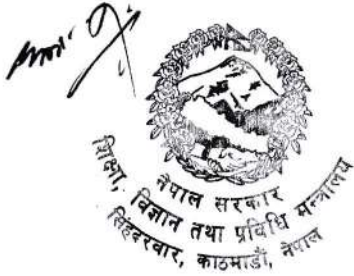 नेपाल सरकार
शिक्षा, विज्ञान तथा प्रविधि मन्त्रालय
सिंहदरवार, काठमाडौं, नेपाल